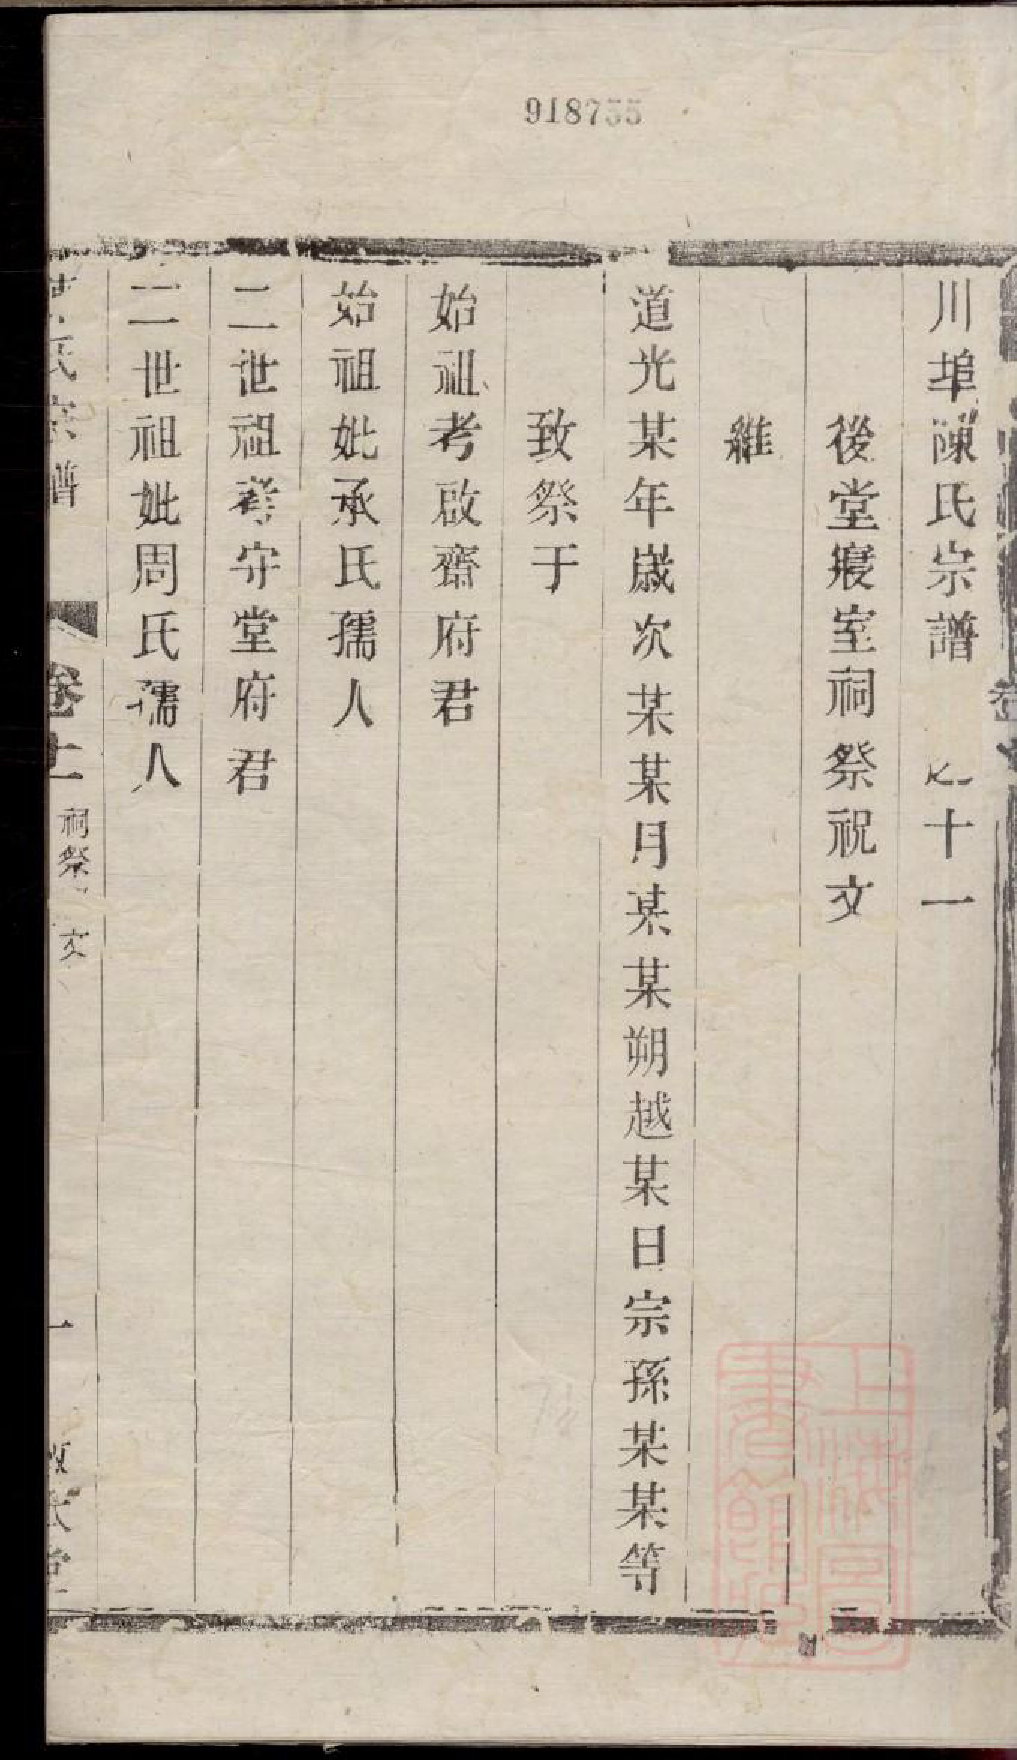 918755
川埠陳氏宗譜 卷十一
後堂寢室祠祭祝文
維
道光某年歲次某某月某某朔越某日宗孫某某等
致祭于
始祖考啟齋府君
始祖妣承氏孺人
二世祖考守堂府君
二世祖妣周氏孺人
氏宗譜 卷十一 祠祭 文 一 堂
上海圖書館藏